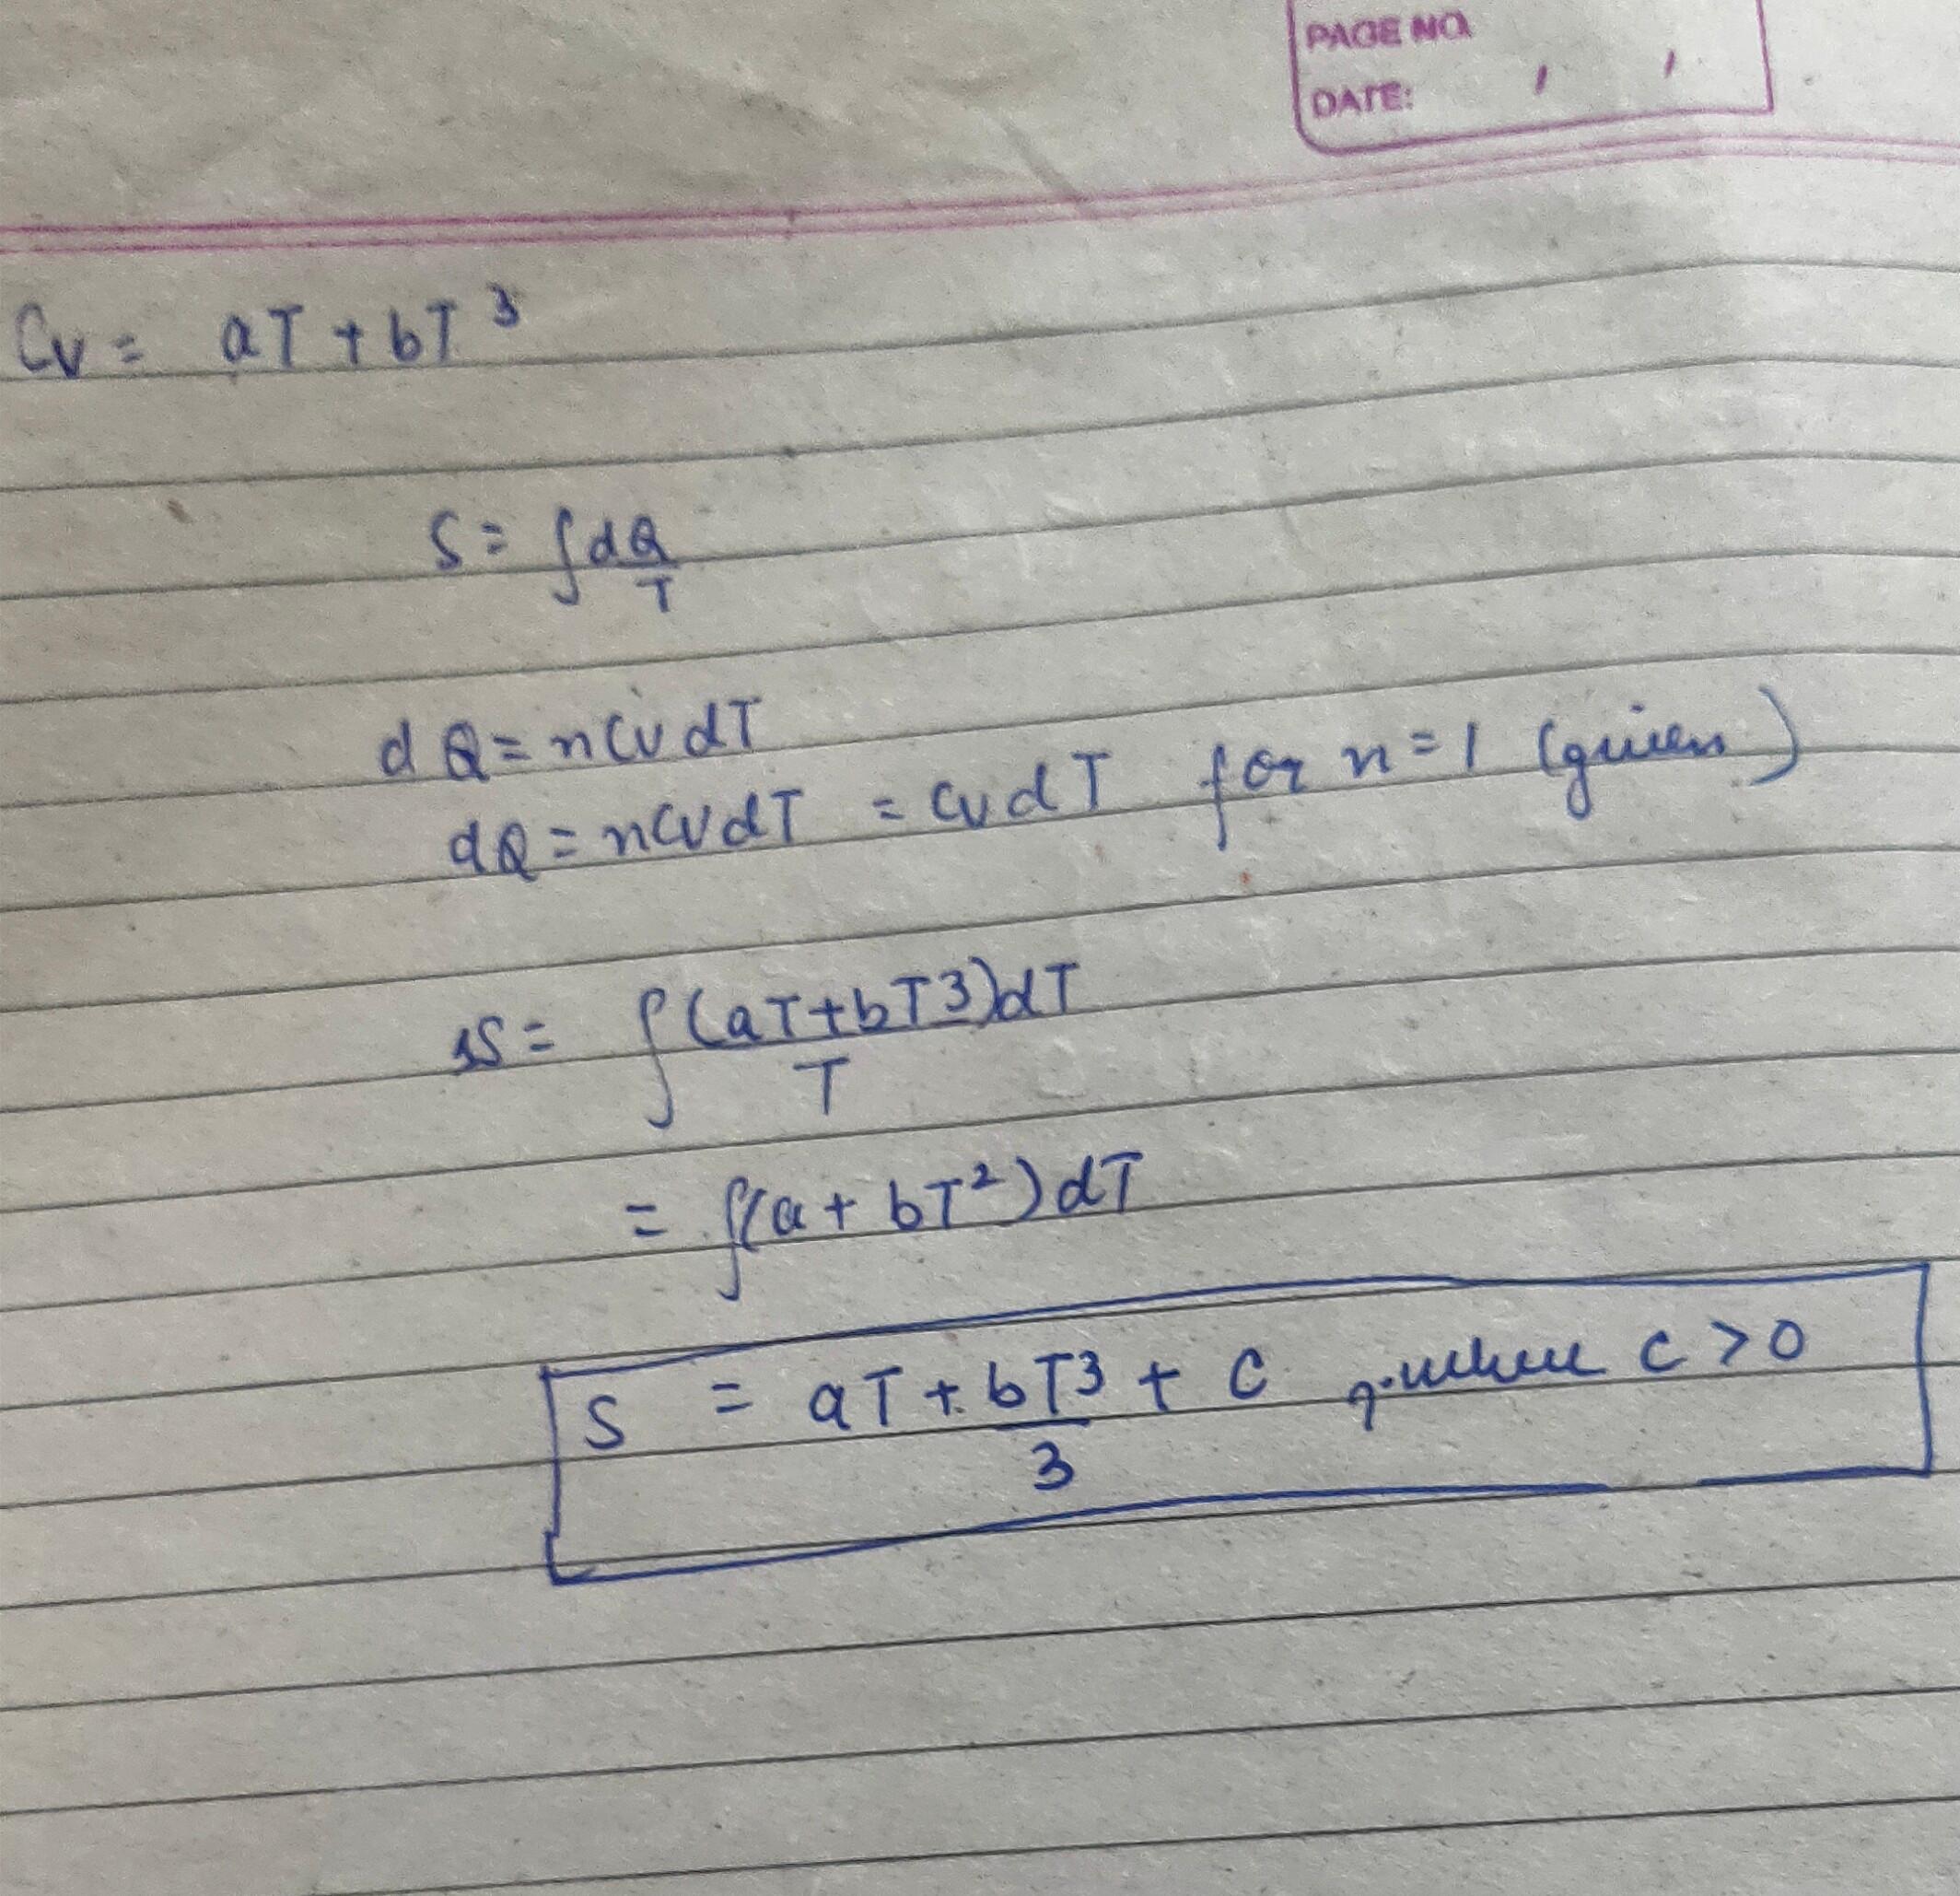 PAGE NO.
DATE: / /
Cv = aT + bT³
S = ∫dQ/T
dQ = nCvdT
dQ = nCvdT = CvdT for n=1 (given)
S = ∫(aT+bT3)dT/T
= ∫(a + bT²)dT
S = aT + bT³/3 + C , where C > 0